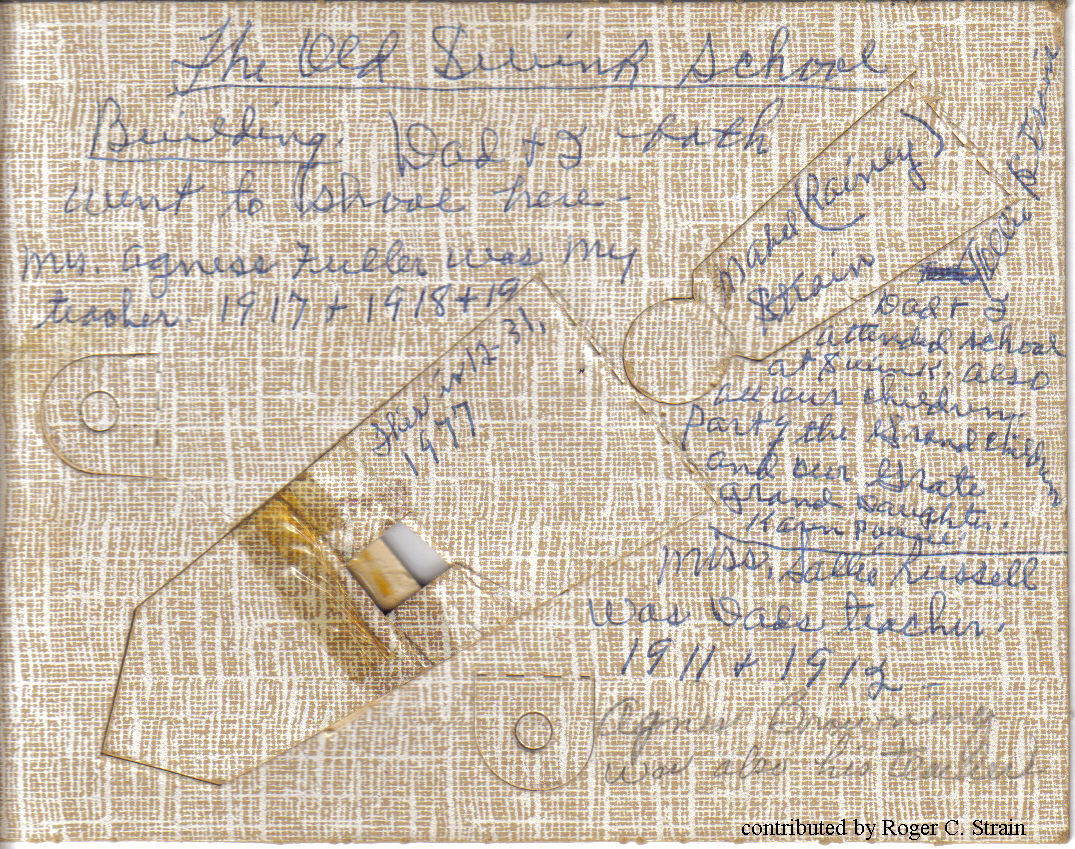 The Old Swink School
Building. Dad + I both
went to school here -
Mrs. Agness Fuller was my
teacher. 1917 + 1918 + 19
This is 12-31,
1977
Mabel (Rainey)
Strain
Dad + I
attended school
at Swink, also
all our children,
Part of the Grand Children
and our Grate
Grand Daughter.
Karen
Miss. Sallie Russell
was Dads teacher.
1911 + 1912 -
Agnes Browning
was also his teacher
contributed by Roger C. Strain